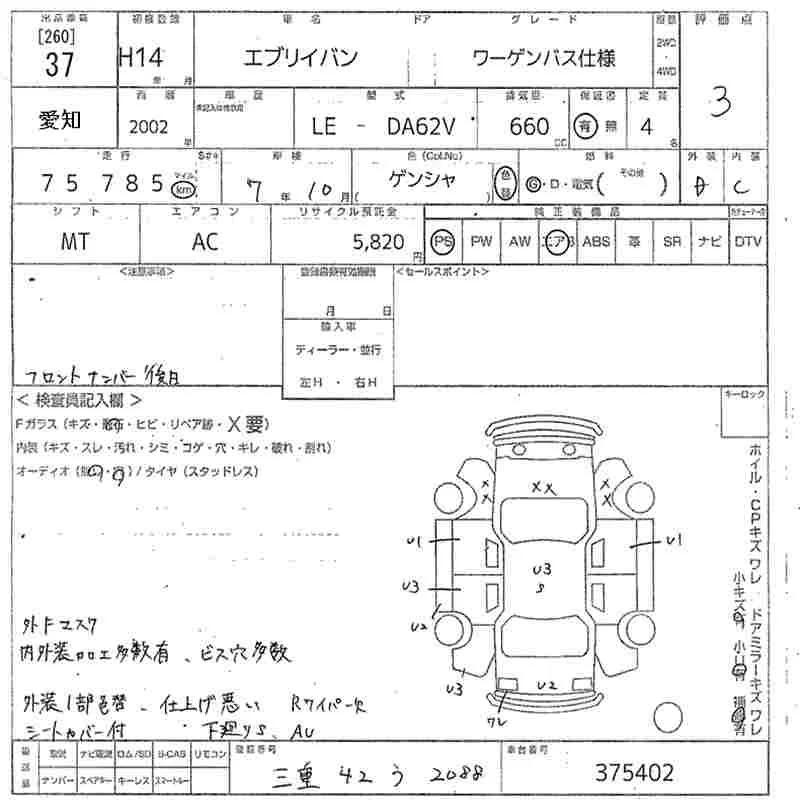 出品番号 初度登録 車名 ドア グレード 評価点
[260]
37 H14 エブリイバン ワーゲンバス仕様 2WD・4WD 3
年 月
愛知 西暦 車歴 型式 排気量 保証書 定員
2002 年 LE - DA62V 660 CC 有 無 4 名
走行 車検 色(Col.No) 燃料 外装 内装
75785 マイル km 7年10月 ゲンシャ 色替 G・D・電気( その他 ) A C
シフト エアコン リサイクル預託金 純正装備品
MT AC 5,820 円 PS PW AW エアB ABS 革 SR ナビ DTV
<注意事項> <セールスポイント>
月 日
輸入車
ディーラー・並行
左H・右H
フロントナンバー後日
<検査員記入欄> キーロック
Fガラス(キズ・飛石・ヒビ・リペア跡・X要)
内装(キズ・スレ・汚れ・シミ・コゲ・穴・キレ・破れ・割れ)
オーディオ( ・ )/タイヤ(スタッドレス)
ホイル・CPキズ ワレ ドアミラーキズ ワレ
小キズ有 小U有
XX
X X
X X
U1 U1
U3 U3
S
U2
U3 U2
ワレ
外Fエスク
内外装加工多数有、ビス穴多数
外装1部色替、仕上げ悪い Rワイパー欠
シートカバー付 下廻りS、AU
後送品 取説 ナビ取説 ロム/SD B-CAS リモコン 登録番号 車台番号
ナンバー スペアキー キーレス スマートキー 三重 42 う 2088 375402